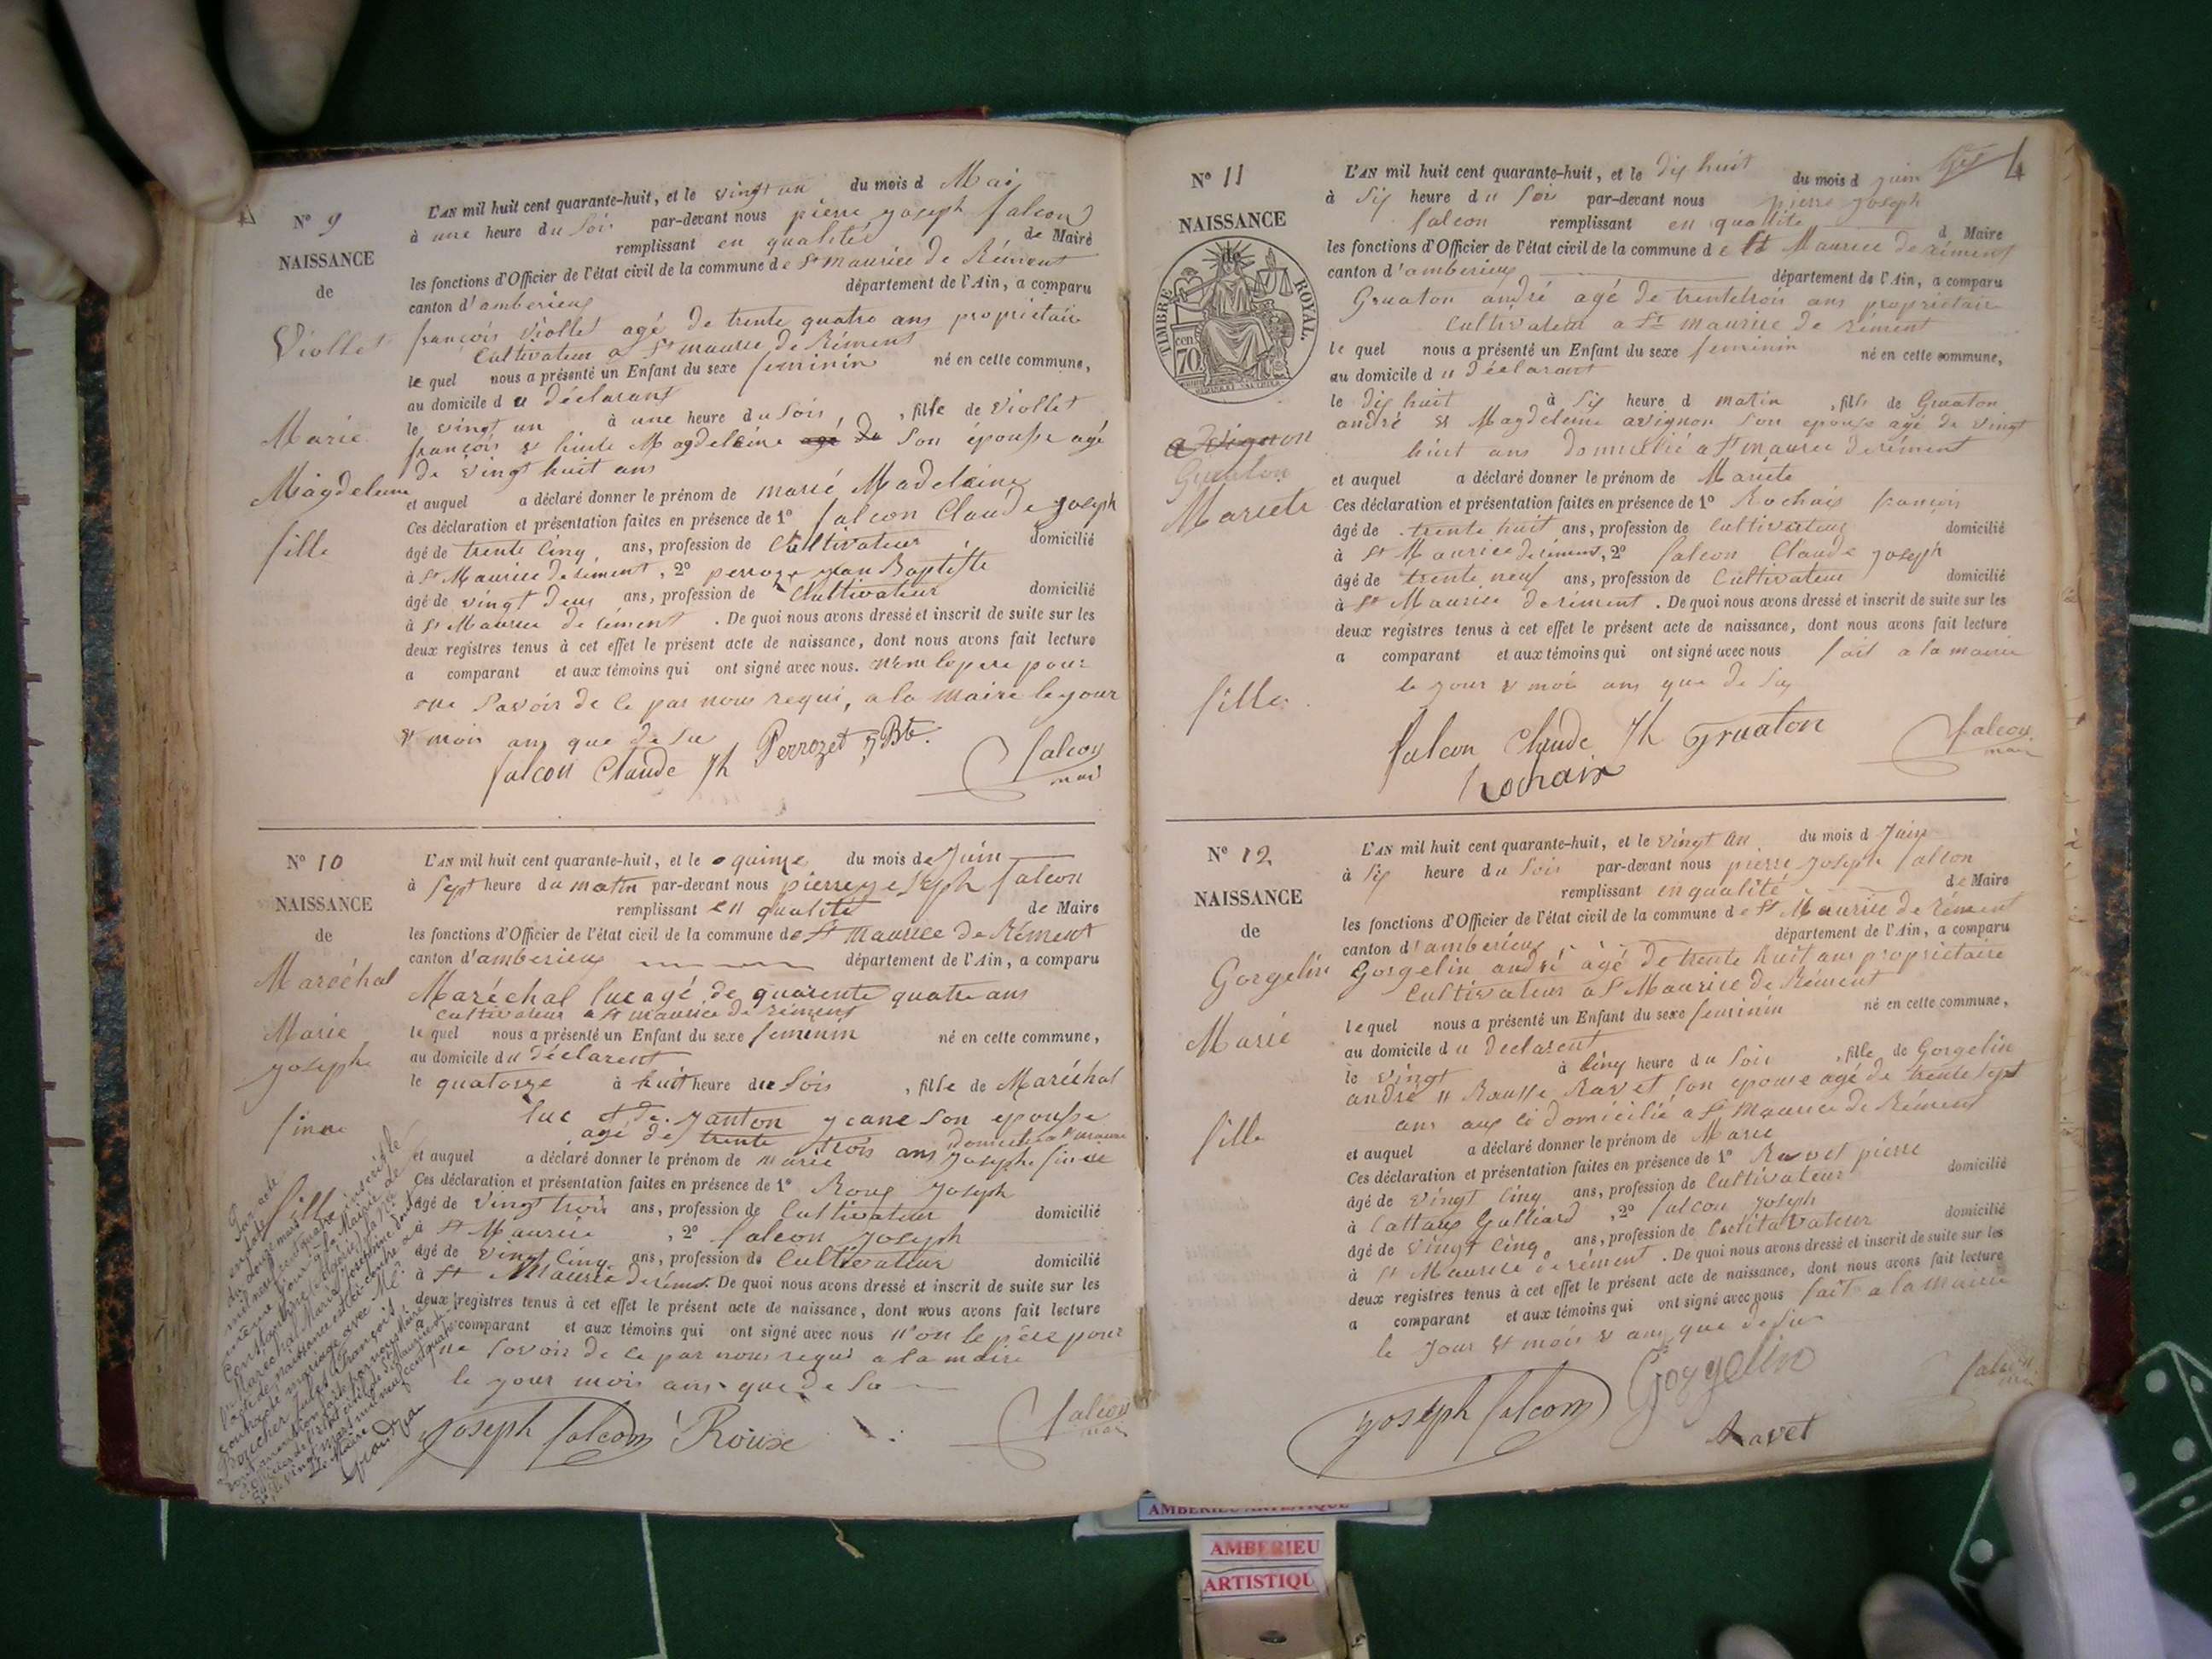 N° 9
NAISSANCE
de
Viollet
Marie
Magdeleine
fille
L'AN mil huit cent quarante-huit, et le vingt un du mois d Mai
à une heure du soir par-devant nous pierre joseph falcon
remplissant en qualité de Maire
les fonctions d'Officier de l'état civil de la commune de St maurice de Rément
canton d'amberieux département de l'Ain, a comparu
françois Viollet agé de trente quatre ans propriétaire
Cultivateur a St maurice de Rément
le quel nous a présenté un Enfant du sexe feminin né en cette commune,
au domicile d u déclarant
le vingt un à une heure du soir, fille de Viollet
françois & Magdeleine agé de son épouse agé
de vingt huit ans
et auquel a déclaré donner le prénom de marie Madeleine
Ces déclaration et présentation faites en présence de 1° falcon Claude joseph
âgé de trente cinq ans, profession de Cultivateur domicilié
à St Maurice de rément, 2° perrozet jean Baptiste
âgé de vingt deux ans, profession de Cultivateur domicilié
à St Maurice de rément. De quoi nous avons dressé et inscrit de suite sur les
deux registres tenus à cet effet le présent acte de naissance, dont nous avons fait lecture
a comparant et aux témoins qui ont signé avec nous. non le pere pour
ne savoir de ce par nous requi, a la maire le jour
& mois an que de su
falcon Claude Jh Perrozet J Bte falcon
mai
N° 10
NAISSANCE
de
Maréchal
Marie
josephe
fine
fille
L'AN mil huit cent quarante-huit, et le quinze du mois de Juin
à sept heure du matin par-devant nous pierre joseph falcon
remplissant en qualité de Maire
les fonctions d'Officier de l'état civil de la commune de St maurice de Rément
canton d'amberieux département de l'Ain, a comparu
Maréchal luc agé de quarente quatre ans
cultivateur a St maurice de rément
le quel nous a présenté un Enfant du sexe femenin né en cette commune,
au domicile du déclarent
le quatorze à huit heure du soir, fille de Maréchal
luc et de janton jeane son epouse
agé de trente trois ans domicilié a St maurice
et auquel a déclaré donner le prénom de marie josephe fine
Ces déclaration et présentation faites en présence de 1° Roux joseph
âgé de vingt trois ans, profession de Cultivateur domicilié
à St Maurice, 2° falcon joseph
âgé de vingt cinq ans, profession de Cultivateur domicilié
à St Maurice de rément. De quoi nous avons dressé et inscrit de suite sur les
deux registres tenus à cet effet le présent acte de naissance, dont nous avons fait lecture
a comparant et aux témoins qui ont signé avec nous non le père pour
ne savoir de ce par nous requi a la maire
le jour mois ans que de su
joseph falcon Roux falcon
mai
Par acte
en date
du douze mars
mil neuf cent quatre inscrit le
même jour à la Mairie de
Maréchal Marie Joséphine dont
l'acte de naissance est ci-contre a
contracté mariage avec Mr
Boucher Jules François
4
N° 11
NAISSANCE
de
TIMBRE ROYAL
cen 70
avignon
Gruaton
Mariete
fille
L'AN mil huit cent quarante-huit, et le dix huit du mois d juin
à six heure du soir par-devant nous pierre joseph
falcon remplissant en quallité d Maire
les fonctions d'Officier de l'état civil de la commune de St Maurice de rément
canton d'amberieux département de l'Ain, a comparu
Gruaton andré agé de trentetrois ans propriétaire
Cultivateur a St maurice de rément
le quel nous a présenté un Enfant du sexe feminin né en cette commune,
au domicile d u déclarant
le dix huit à six heure d matin, fille de Gruaton
andré & Magdeleine avignon son epouse agé de vingt
huit ans domicillié a St maurice de rément
et auquel a déclaré donner le prénom de Mariete
Ces déclaration et présentation faites en présence de 1° Rochaix françois
âgé de trente huit ans, profession de Cultivateur domicilié
à St Maurice de rément, 2° falcon Claude joseph
âgé de trente neuf ans, profession de Cultivateur domicilié
à St Maurice de rément. De quoi nous avons dressé et inscrit de suite sur les
deux registres tenus à cet effet le présent acte de naissance, dont nous avons fait lecture
a comparant et aux témoins qui ont signé avec nous fait a la mairie
le jour & mois ans que de su
falcon Claude Jh Gruaton falcon
Rochaix mai
N° 12
NAISSANCE
de
Gorgelin
Marie
fille
L'AN mil huit cent quarante-huit, et le vingt un du mois d Juin
à six heure du soir par-devant nous pierre joseph falcon
remplissant en qualité de Maire
les fonctions d'Officier de l'état civil de la commune de St Maurice de rément
canton d'amberieux département de l'Ain, a comparu
Gorgelin andré agé de trente huit ans propriétaire
Cultivateur a St Maurice de Rément
le quel nous a présenté un Enfant du sexe feminin né en cette commune,
au domicile d u declarent
le vingt à cinq heure du soir, fille de Gorgelin
andré & Ravet son epouse agé de trente sept
ans domicilié a St Maurice de Rément
et auquel a déclaré donner le prénom de Marie
Ces déclaration et présentation faites en présence de 1° Ravet pierre
âgé de vingt cinq ans, profession de Cultivateur domicilié
à, 2° falcon Joseph
âgé de vingt cinq ans, profession de domicilié
à St Maurice de rément. De quoi nous avons dressé et inscrit de suite sur les
deux registres tenus à cet effet le présent acte de naissance, dont nous avons fait lecture
a comparant et aux témoins qui ont signé avec nous fait a la mairie
le Jour & mois & ans que de su
joseph falcon Gorgelin falcon
Ravet
AMBERIEU ARTISTIQUE
AMBERIEU
ARTISTIQU